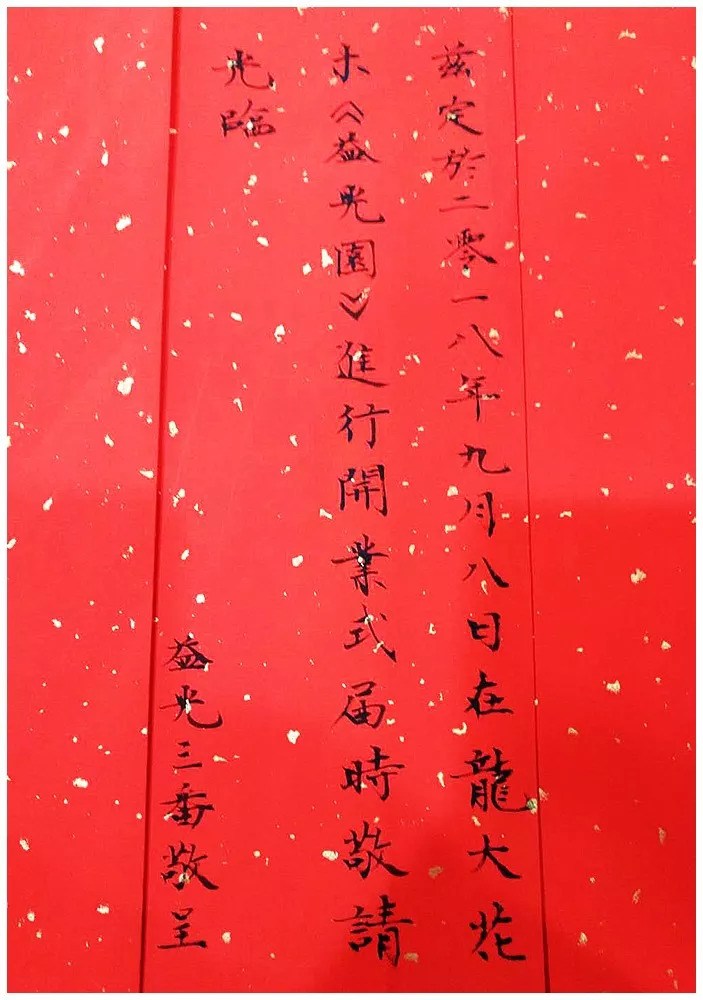 茲定於二零一八年九月八日在龍大花
木《益光園》進行開業式届時敬請
光臨
益光三番敬呈